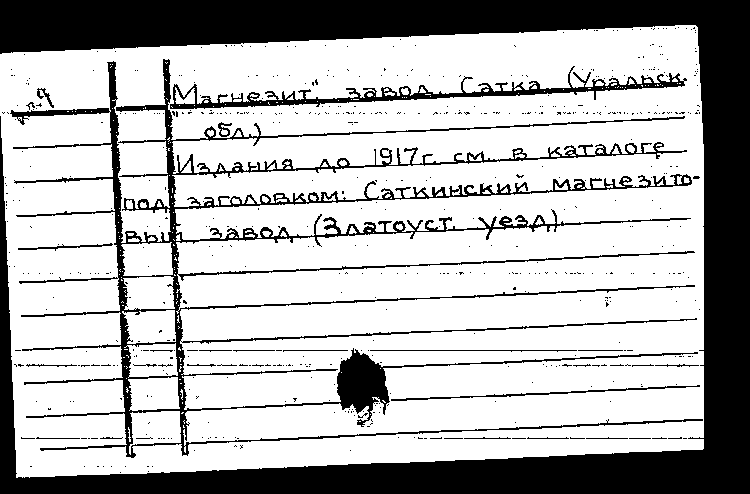 Магнезит", завод. Сатка (Уральск.
обл.)
Издания до 1917г. см. в каталоге
под заголовком: Саткинский магнезито-
вый завод. (Златоуст. уезд).